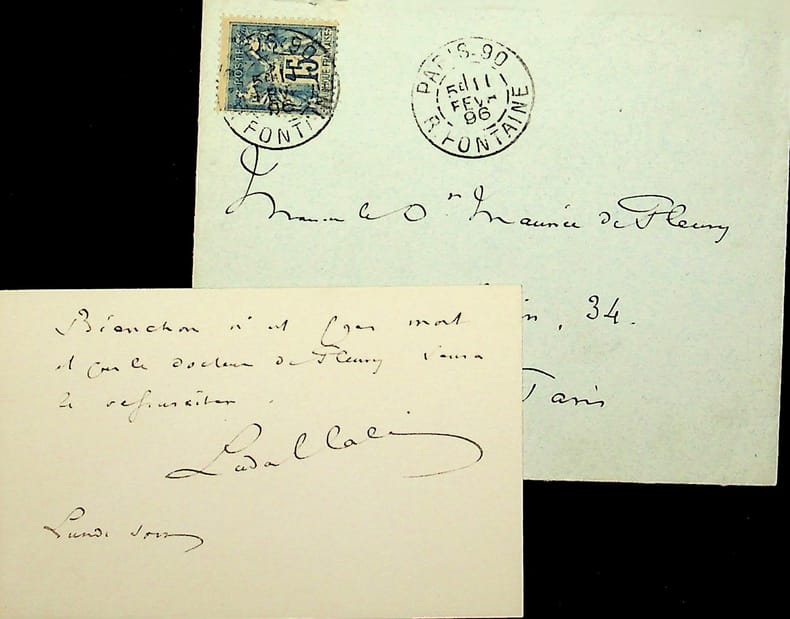 15
PARIS-90
5E 11
FEVR
96
R. FONTAINE
PARIS-90
FEVR
96
R. FONTAINE
Monsieur le Dr Maurice de Fleury
34.
Paris
Bianchon n'est pas mort
et que le docteur de Fleury saura
le ressusciter.
Lundi soir